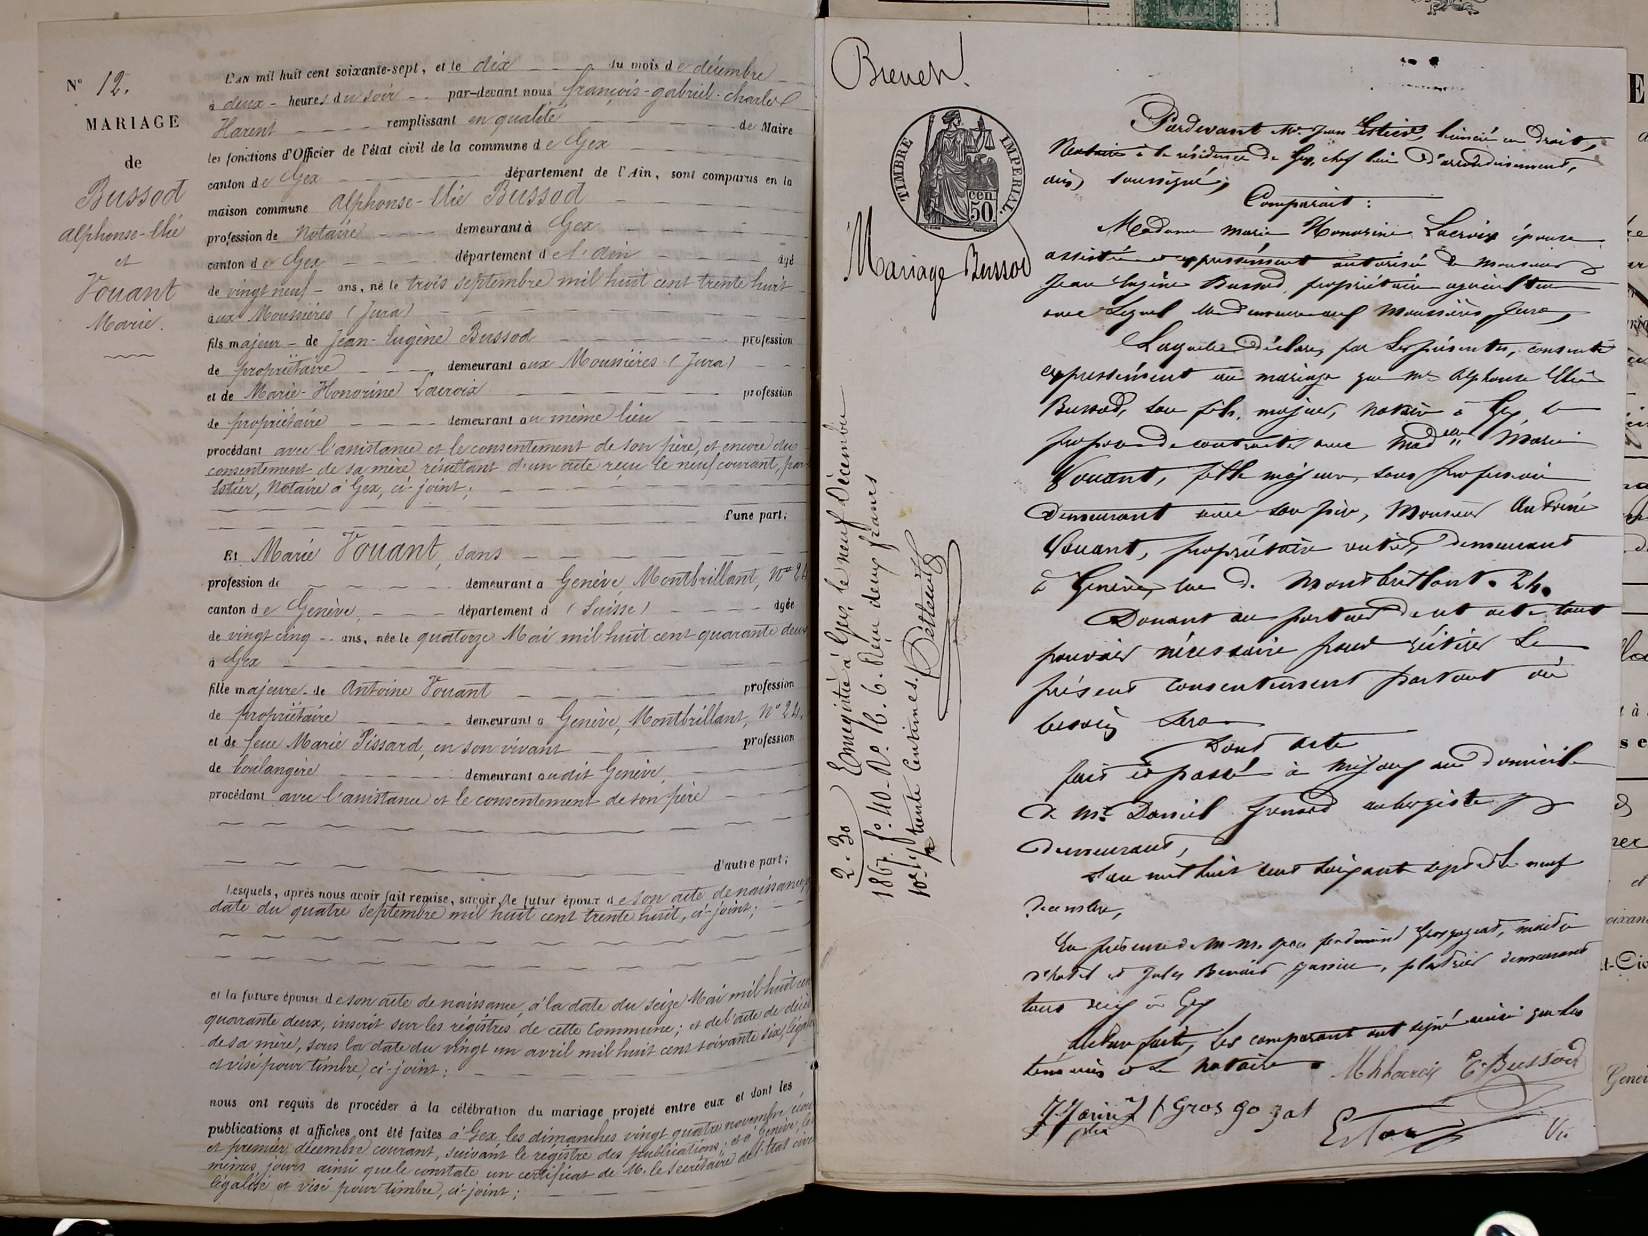 N° 12.
MARIAGE
de
Bussod
Alphonse-Elie
et
Vouant
Marie.
L'AN mil huit cent soixante-sept, et le dix du mois de décembre
à deux heures du soir par-devant nous françois-gabriel-charles
Harent remplissant en qualité de Maire
les fonctions d'Officier de l'état civil de la commune de Gex
canton de Gex département de l'Ain, sont comparus en la
maison commune Alphonse-Elie Bussod
profession de Notaire demeurant à Gex
canton de Gex département de l'Ain âgé
de vingt neuf ans, né le trois septembre mil huit cent trente huit
aux Moussières (Jura)
fils majeur de Jean-Eugène Bussod profession
de propriétaire demeurant aux Moussières (Jura)
et de Marie-Honorine Lacroix profession
de propriétaire demeurant au même lieu
procédant avec l'assistance et le consentement de son père, et encore du
consentement de sa mère résultant d'un acte reçu le neuf courant, par
Estier, Notaire à Gex, ci-joint;
d'une part;
Et Marie Vouant, sans
profession de demeurant à Genève, Montbrillant, N° 24
canton de Genève, département d (Suisse) âgée
de vingt cinq ans, née le quatorze Mai mil huit cent quarante deux
à Gex
fille majeure de Antoine Vouant profession
de propriétaire demeurant à Genève, Montbrillant, N° 24.
et de feue Marie Pissard, en son vivant profession
de boulangère demeurant audit Genève,
procédant avec l'assistance et le consentement de son père
d'autre part;
Lesquels, après nous avoir fait remise, savoir, le futur époux de son acte de naissance,
date du quatre septembre mil huit cent trente huit, ci-joint;
et la future épouse de son acte de naissance, à la date du seize Mai mil huit cent
quarante deux, inscrit sur les régistres de cette Commune; et de l'acte de décès
de sa mère, sous la date du vingt un avril mil huit cent soixante six, légalisé
et visé pour timbre, ci-joint;
nous ont requis de procéder à la célébration du mariage projeté entre eux et dont les
publications et affiches ont été faites à Gex, les dimanches vingt quatre novembre
et premier décembre courant, suivant le régistre des publications; et à Genève, les
mêmes jours ainsi que le constate un certificat de M. le Secrétaire de l'état civil
légalisé et visé pour timbre, ci-joint;
Brevet.
TIMBRE IMPERIAL.
50 cen
Mariage Bussod
Enregistré à Gex le neuf Décembre
1867. f° 40. R° C. 6. Reçu deux francs
10es trente centimes.
2.30
Pardevant Me Jean Estier, licencié en Droit,
Notaire à la résidence de Gex, chef lieu d'arrondissement,
Ain, soussigné;
Comparait:
Madame Marie Honorine Lacroix épouse
assistée et expressément autorisée de monsieur
Jean Eugène Bussod, propriétaire agriculteur
avec lequel elle demeure aux Moussières, Jura,
Laquelle déclare, par les présentes, consentir
expressément au mariage que Mr Alphonse Elie
Bussod, son fils majeur, notaire à Gex, se
propose de contracter avec Madelle Marie
Vouant, fille majeure, sans profession
demeurant avec son père, Monsieur Antoine
Vouant, propriétaire rentier, demeurant
à Genève, rue de Montbrillant. 24.
Donant au porteur de cet acte tout
pouvoir nécessaire pour réitérer le
présent consentement partout où
besoin sera
Dont acte
fait et passé à Mijoux au domicile
de Mr Daniel Grenard aubergiste y
demeurant,
L'an mil huit cent soixante sept et le neuf
Décembre,
En présence de MM. ferdinand Grosgogeat, maître
d'hotel et Jules Benoit plâtrier demeurant
tous deux à Gex
Lecture faite, les comparant ont signé ainsi que les
témoins et le Notaire.
MhLacroix E. Bussod
Grosgogeat
Estier